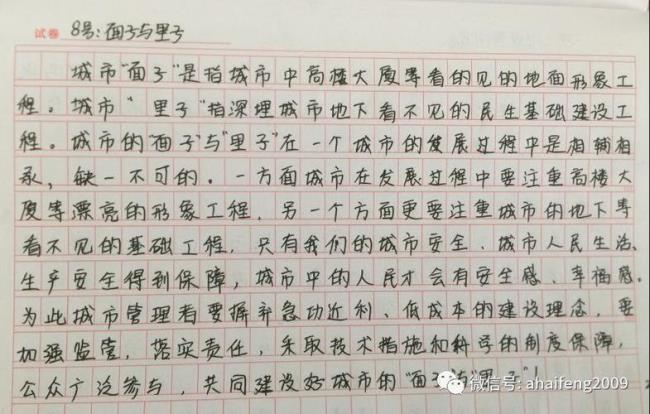 试卷 8号：面子与里子
城市“面子”是指城市中高楼大厦等看的见的地面形象工
程。城市“里子”指深埋城市地下看不见的民生基础建设工
程。城市的“面子”与“里子”在一个城市的发展过程中是相辅相
承，缺一不可的。一方面城市在发展过程中要注重高楼大
厦等漂亮的形象工程，另一个方面更要注重城市的地下等
看不见的基础工程，只有我们的城市安全、城市人民生活、
生产安全得到保障，城市中的人民才会有安全感、幸福感。
为此城市管理者要摒弃急功近利、低成本的建设理念，要
加强监管，落实责任，采取技术措施和科学的制度保障，
公众广泛参与，共同建设好城市的“面子”与“里子”！
微信号: ahaifeng2009